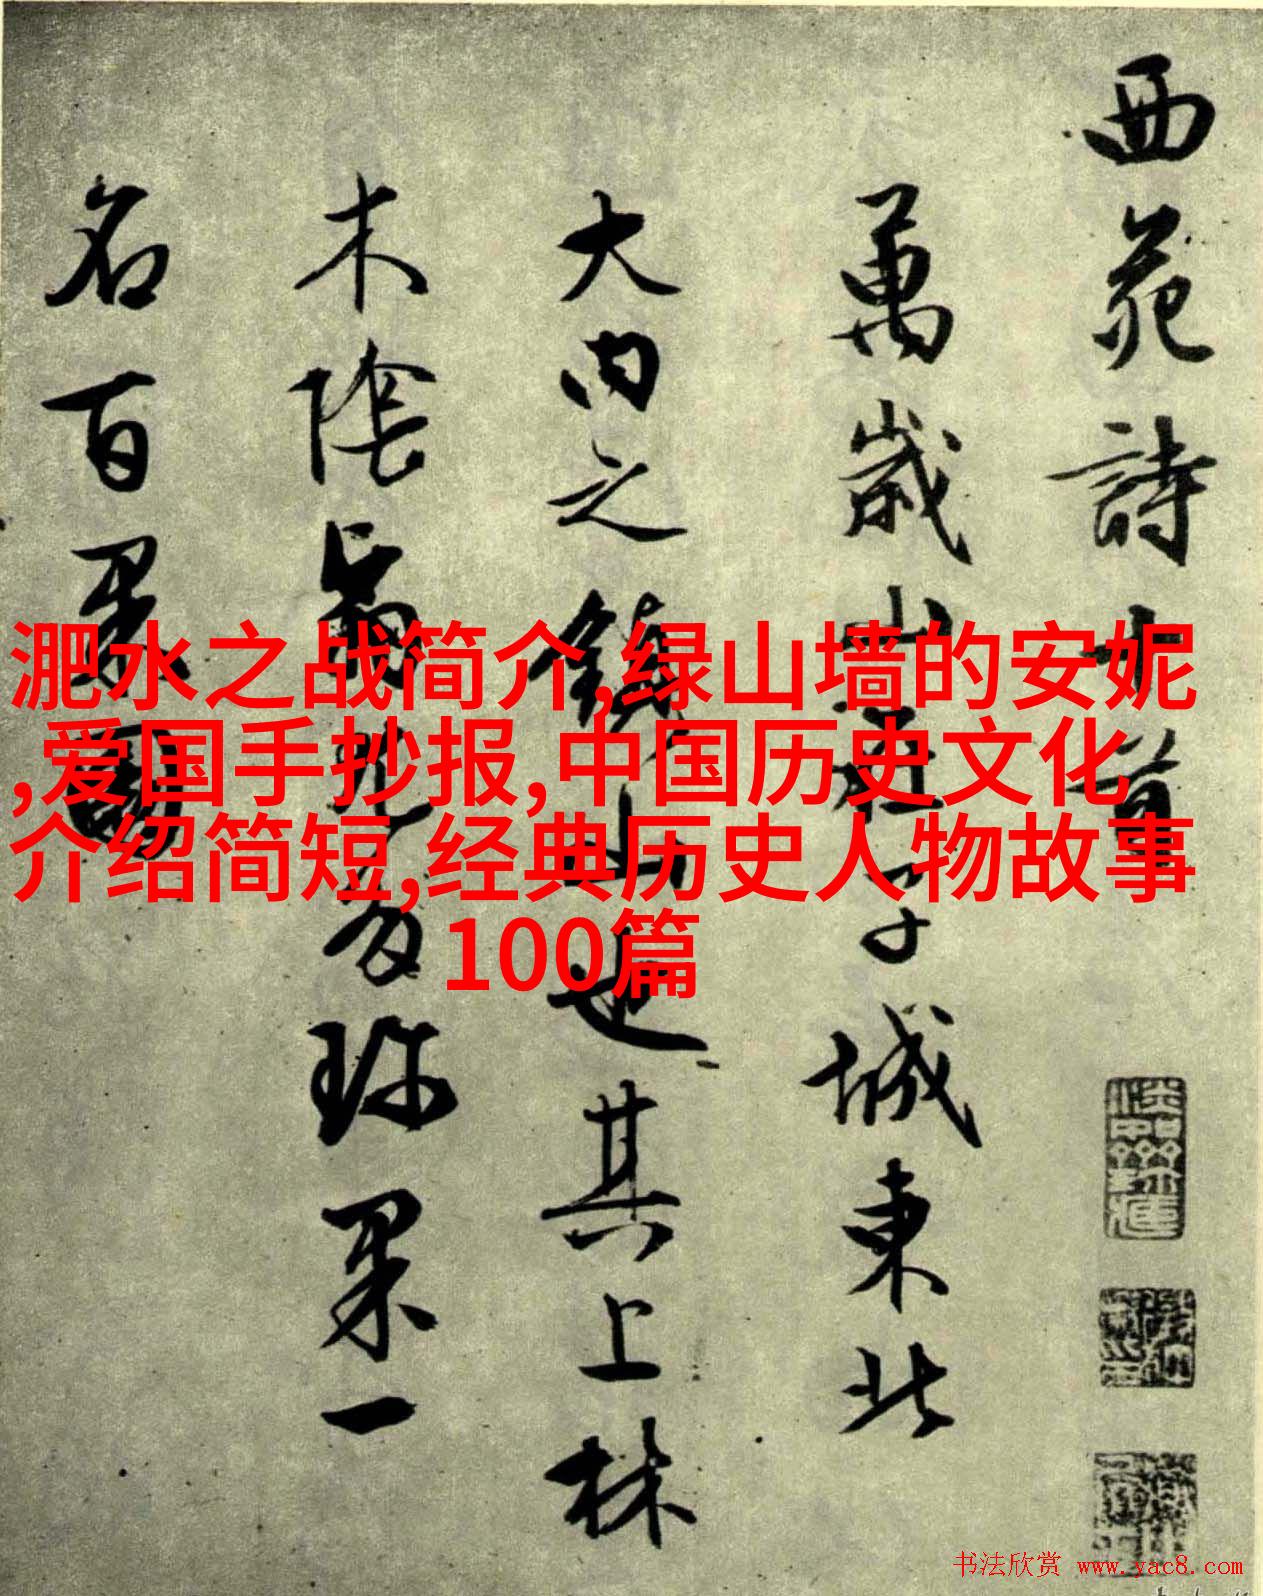 西苑詩十首
萬歲山在子城東北
大内之鎮山也其上林
木陰翳尤多珍果一
名百果園
淝水之战简介,绿山墙的安妮
,爱国手抄报,中国历史文化
介绍简短,经典历史人物故事
100篇
书法欣赏 www.yac8.com